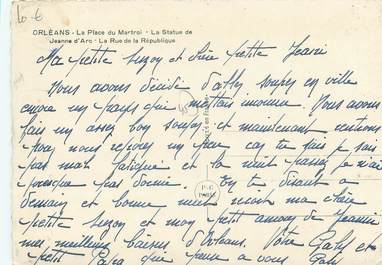 10 €
ORLÉANS - La Place du Martroi - La Statue de
Jeanne d'Arc - La Rue de la République
Ma petite Suzon et chère petite Jeanie
Nous avons décidé d'aller souper en ville
encore un pays qui m'était inconnu. Nous avons
fait un assez bon souper et maintenant rentrons
pour nous reposer un peu car tu sais je suis
pas mal fatigué et la nuit passée je n'ai
presque pas dormi. On te disant à
demain et bonne nuit ma chère
petite Suzon et mon petit amour de Jeanie
mes meilleurs baisers d'Orléans. Votre Gaby et
petit Papa qui pense à vous Gaby